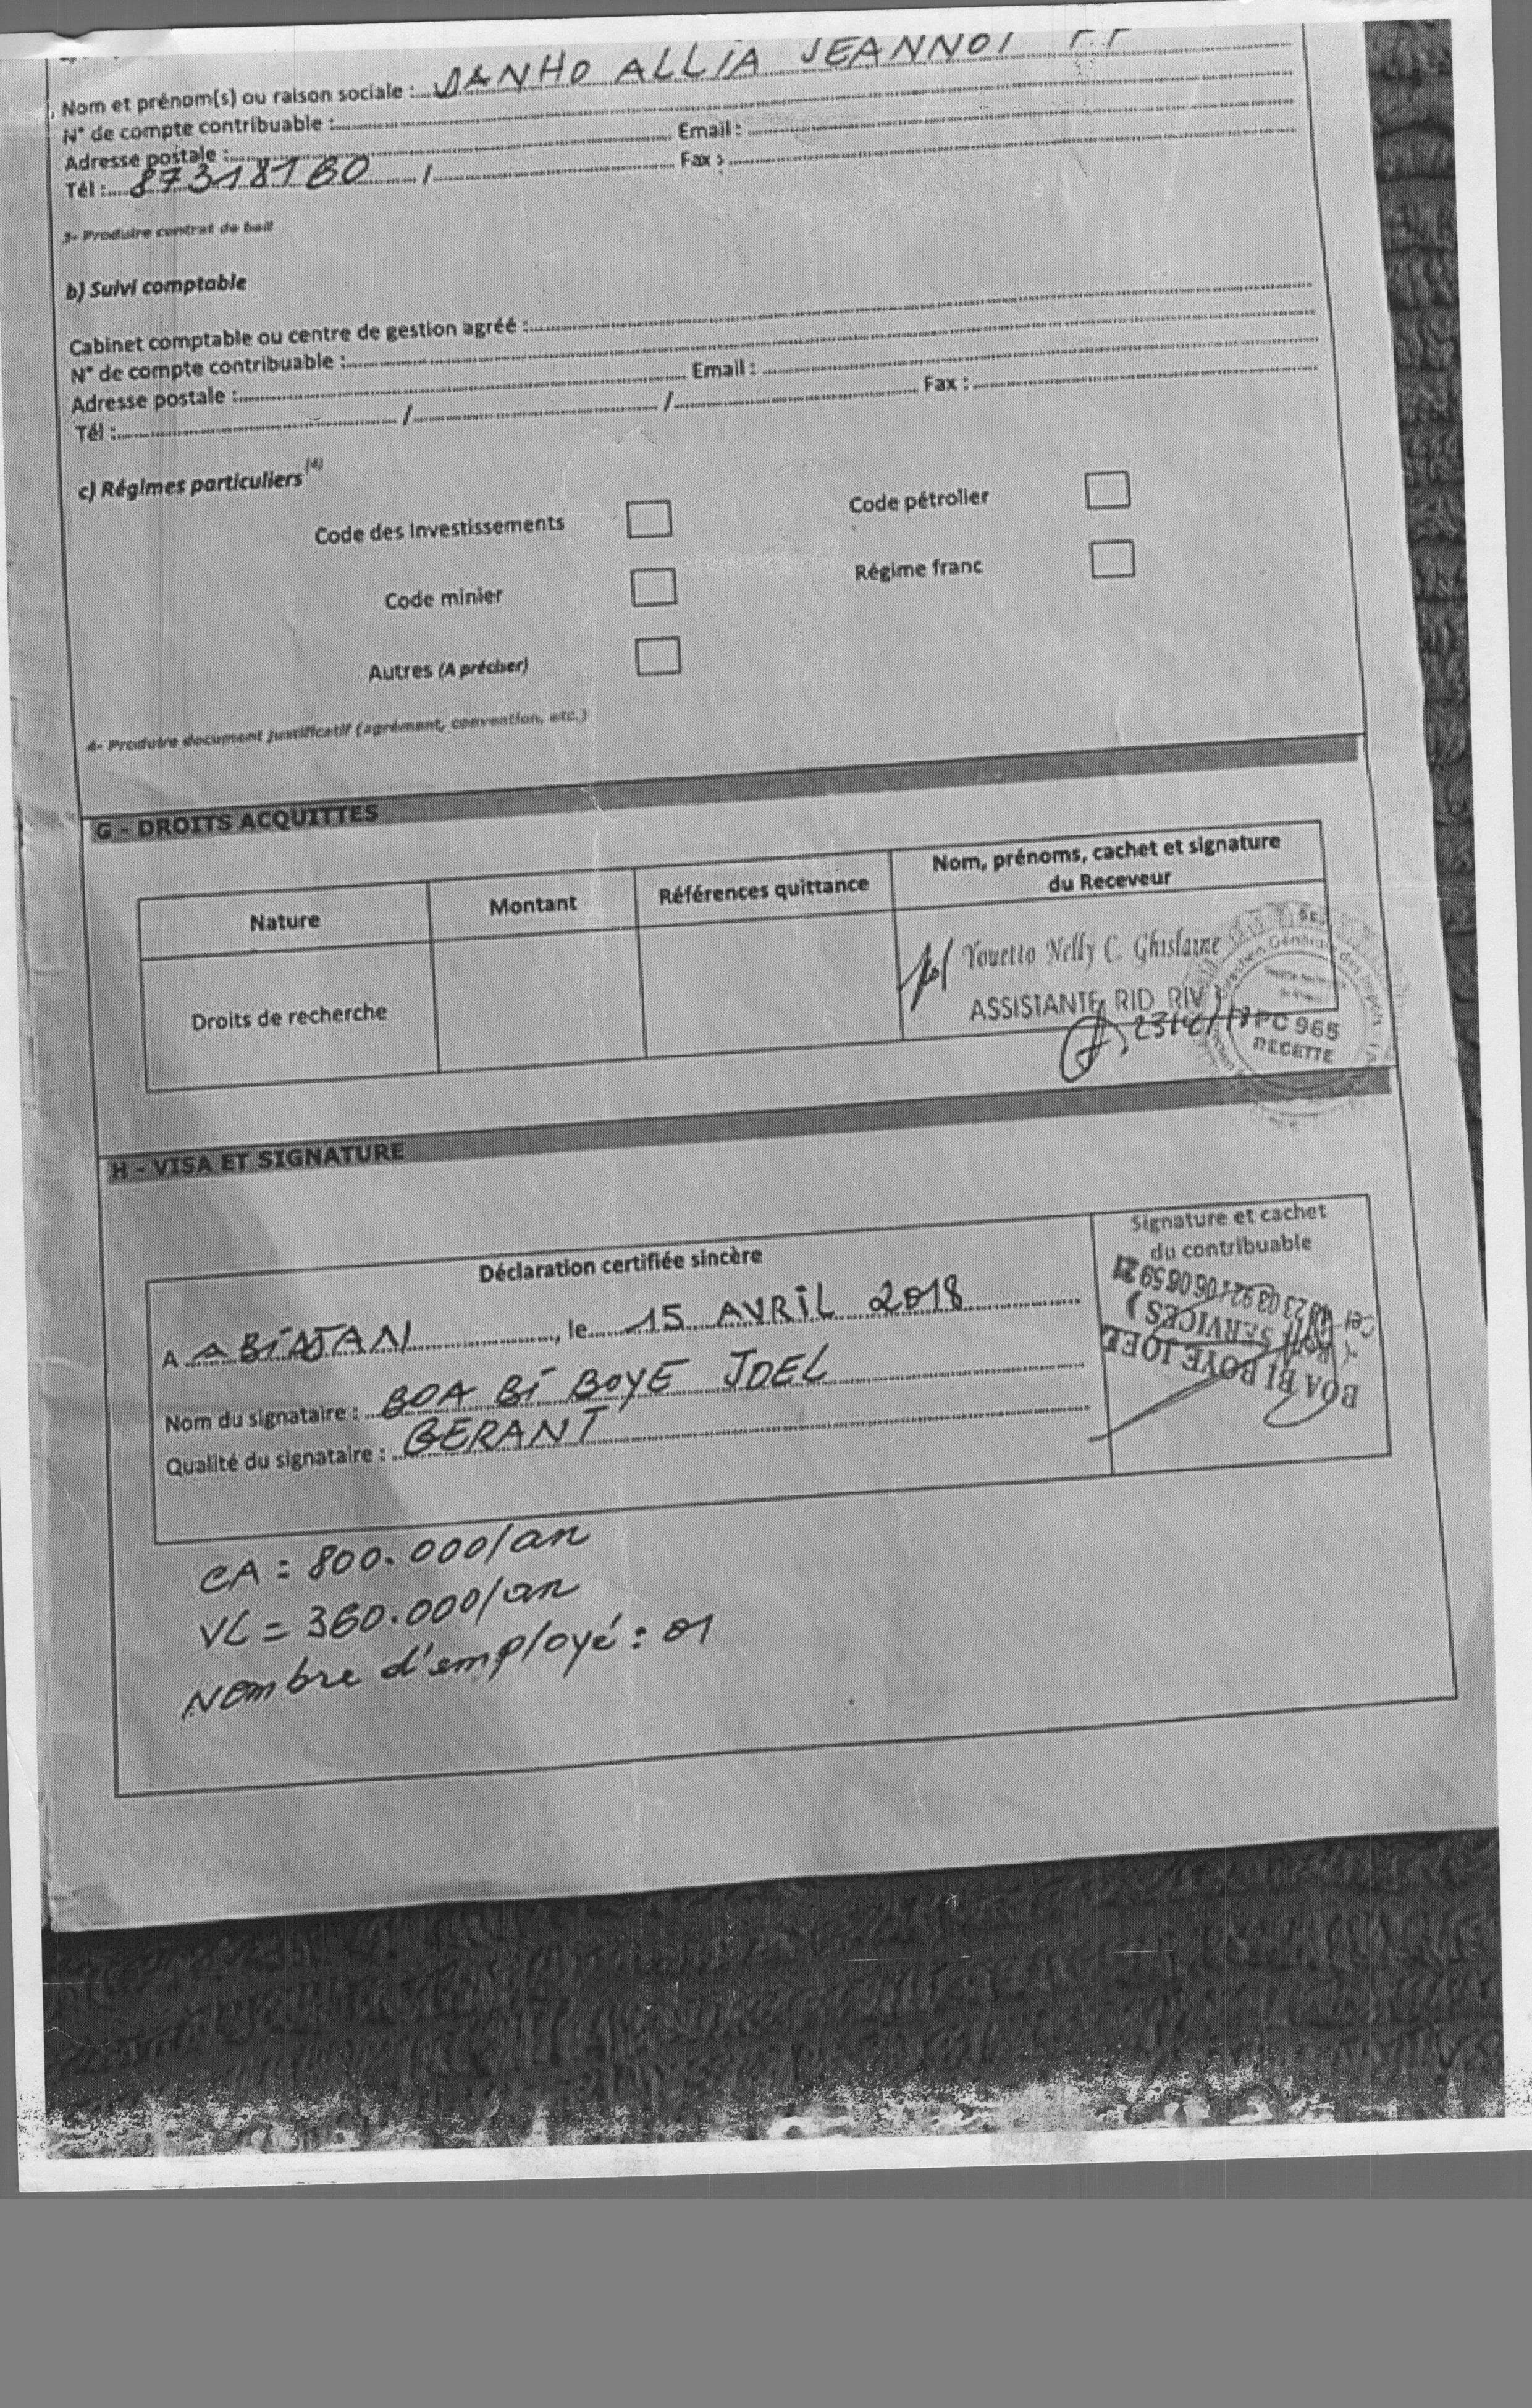 Nom et prénom(s) ou raison sociale : DANHO ALLIA JEANNOT
N° de compte contribuable :
Adresse postale : Email :
Tél : 87318160 / Fax :
3- Produire contrat de bail
b) Suivi comptable
Cabinet comptable ou centre de gestion agréé :
N° de compte contribuable :
Adresse postale : Email :
Tél : / / Fax :
c) Régimes particuliers (4)
Code des Investissements Code pétrolier
Code minier Régime franc
Autres (A préciser)
4- Produire document justificatif (agrément, convention, etc.)
G - DROITS ACQUITTES
Nature Montant Références quittance Nom, prénoms, cachet et signature du Receveur
Droits de recherche
Youetto Nelly C. Ghislaine
ASSISTANTE RID RIV
Direction Générale des Impôts
PC 965
RECETTE
H - VISA ET SIGNATURE
Déclaration certifiée sincère
Signature et cachet
du contribuable
A ABIDJAN, le 15 AVRIL 2018
Nom du signataire : BOA BI BOYE JOEL
Qualité du signataire : GERANT
BOA BI BOYE JOEL
SERVICES)
CA = 800.000/an
VL = 360.000/an
Nombre d'employé : 01